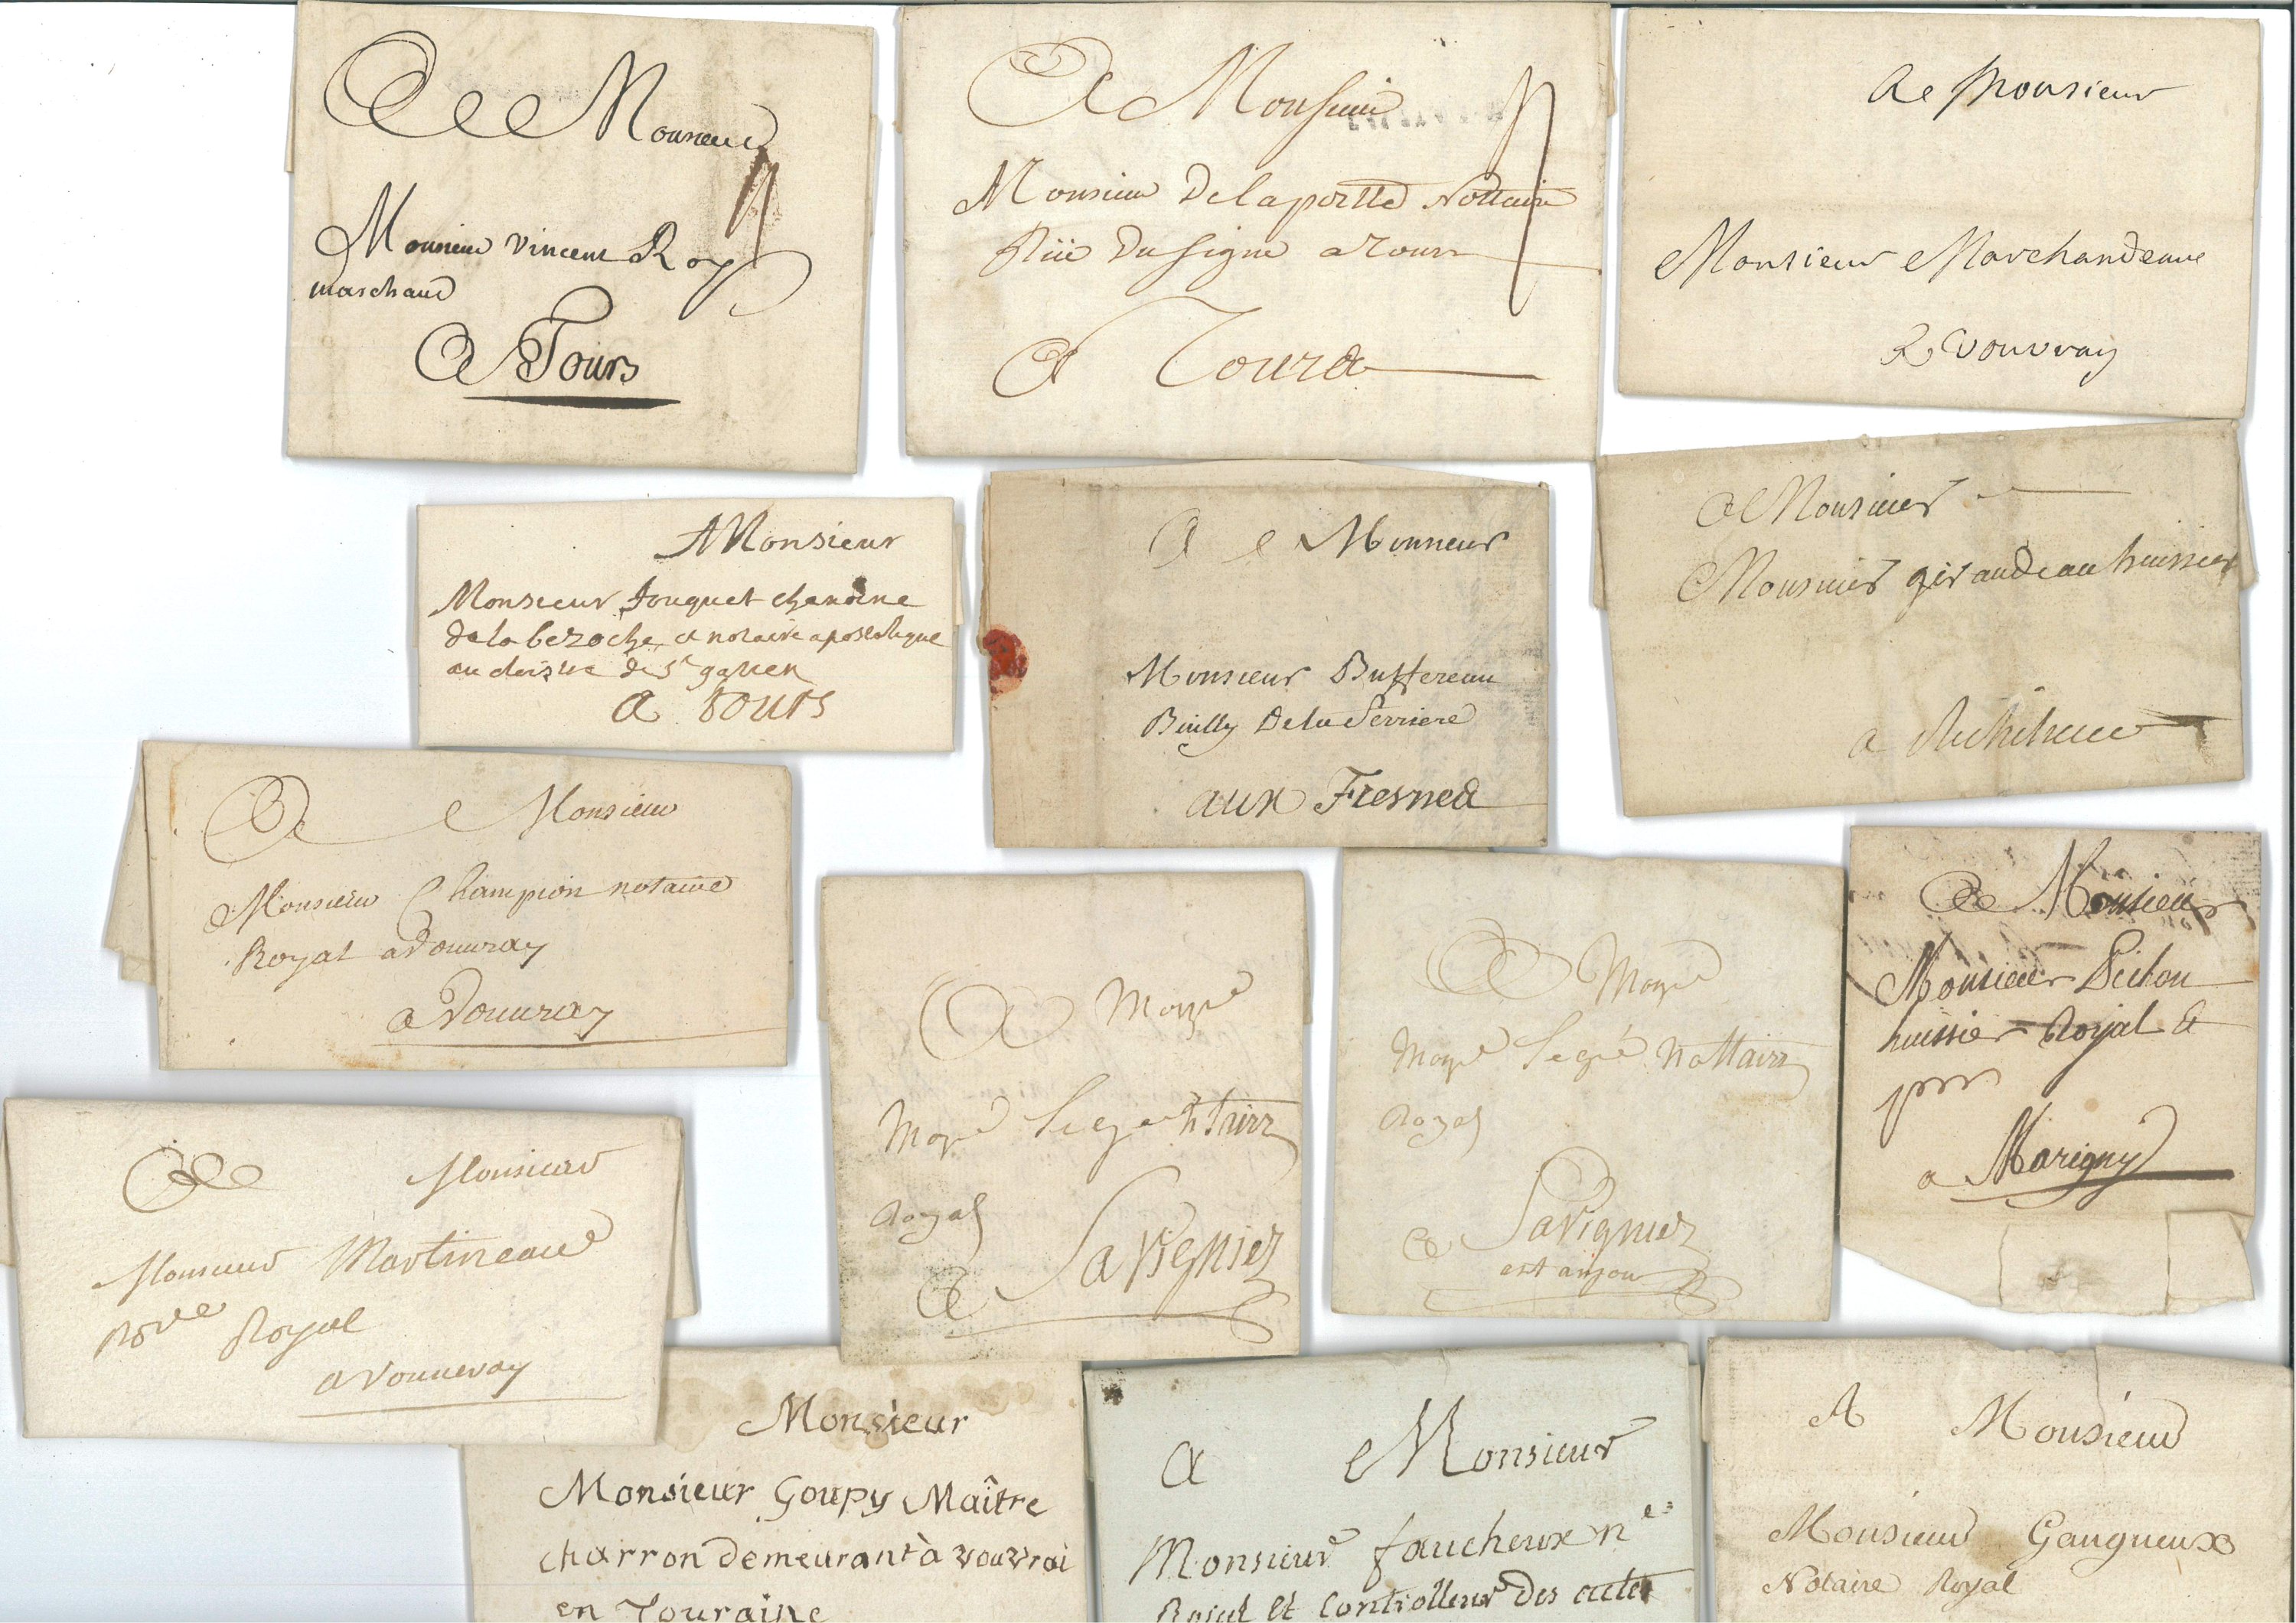 A Monsieur
Monsieur Vincent Roy
marchand
A Tours
A Monsieur
Monsieur Delaportte Nottaire
Rüe Du Signe a Tours
A Tours
A Monsieur
Monsieur Marchandeau
A vouvray
A Monsieur
Monsieur fouquet chanoine
de la bezoche et notaire apostolique
au cloistre de St gatien
A Tours
A Monsieur
Monsieur Buffereau
Bailly De la Ferriere
aux Fresnes
A Monsieur
Monsieur giraudeau huissier
a Richelieu
A Monsieur
Monsieur Champion notaire
Royal a Vouvray
a Vouvray
A Monsr
Monsr Segre
Royal
A Savignier
A Monsr
Monsr Segré Nottaire
Royal
A Savignier
est anjou
A Monsieur
Monsieur Pichon
huissier Royal &
a Marigny
A Monsieur
Monsieur Martineau
Nore Royal
a Vouvray
Monsieur
Monsieur Goupy Maître
charron demeurant à vouvrai
en Touraine
A Monsieur
Monsieur faucheux ne
Roial et Controlleur Des actes
A Monsieur
Monsieur Gangneux
Notaire Royal